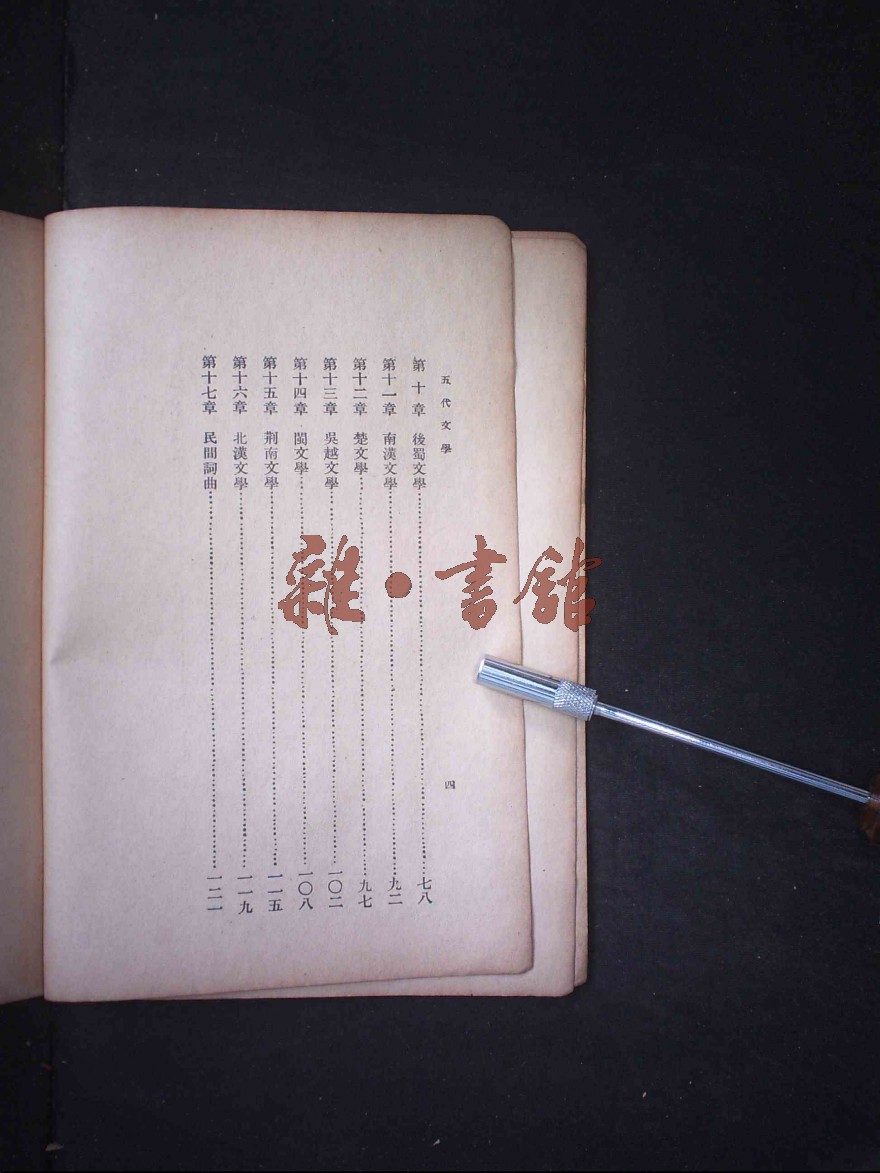 五代文學
四
第十章 後蜀文學……七八
第十一章 南漢文學……九二
第十二章 楚文學……九七
第十三章 吳越文學……一〇二
第十四章 閩文學……一〇八
第十五章 荆南文學……一一五
第十六章 北漢文學……一一九
第十七章 民間詞曲……一二一
雜•書館